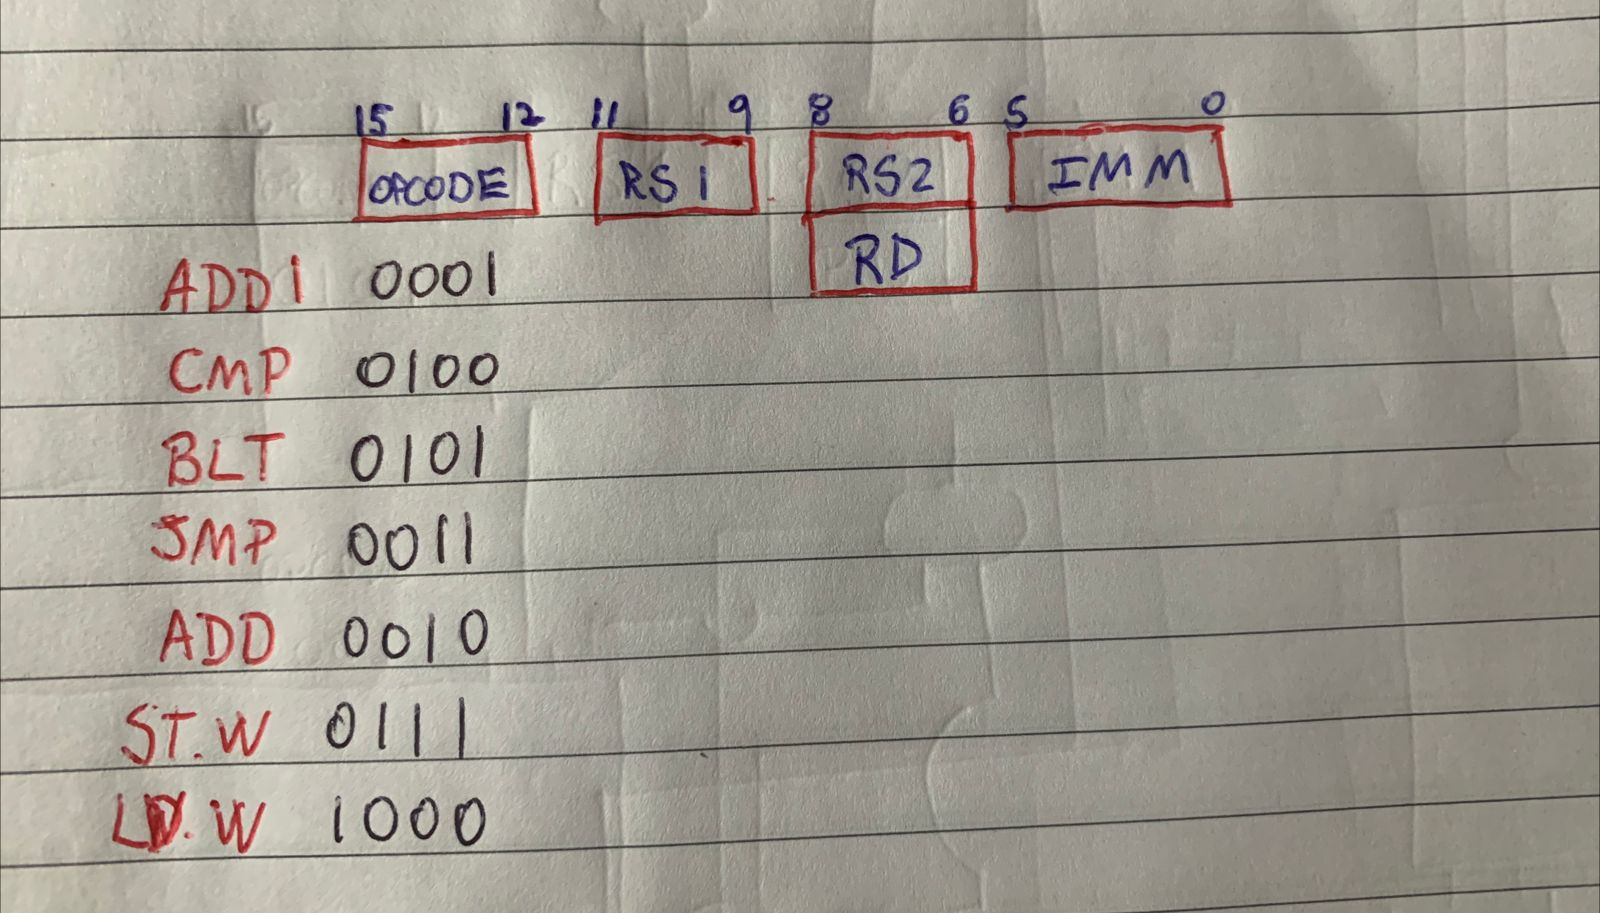 15 12 11 9 8 6 5 0
OPCODE RS1 RS2 IMM
RD
ADDI 0001
CMP 0100
BLT 0101
JMP 0011
ADD 0010
ST.W 0111
LD.W 1000